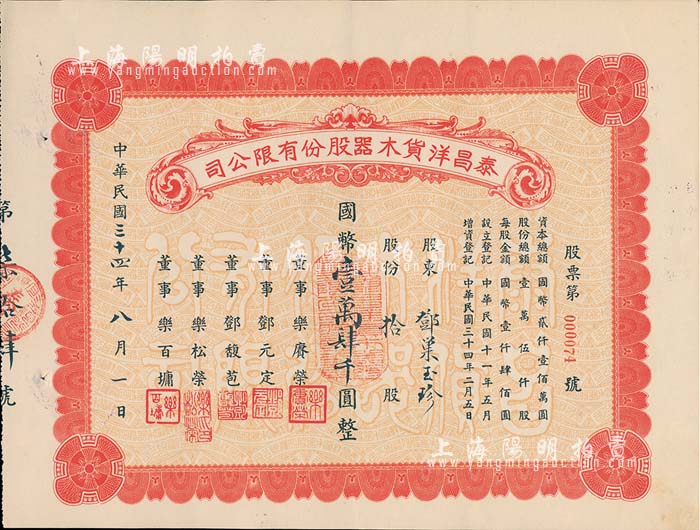 上海陽明拍賣
www.yangmingauction.com
泰昌洋貨木器股份有限公司
股票第 0000074 號
資本總額 國幣貳仟壹佰萬圓
股份總額 壹萬伍仟股
每股金額 國幣壹仟肆佰圓
設立登記 中華民國十一年五月
增資登記 中華民國三十四年二月五日
股東 鄧巢玉珍
股份 拾 股
國幣壹萬肆千圓整
董事 樂賡榮
董事 鄧元定
董事 鄧馥苞
董事 樂松榮
董事 樂百墉
中華民國三十四年八月一日
第柒拾肆號
上海陽明拍賣
www.yangmingauction.com